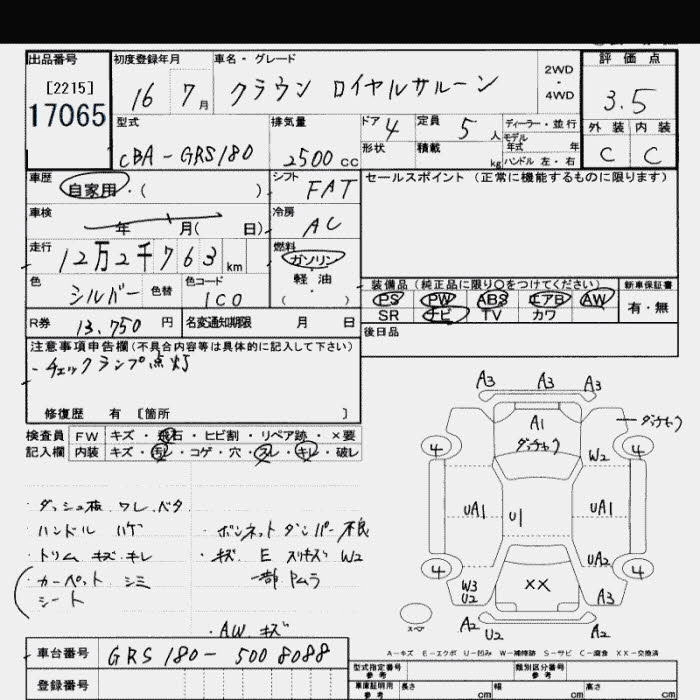 出品番号 初度登録年月 車名・グレード 2WD・4WD 評価点
[2215]
17065
16 7月 クラウン ロイヤルサルーン 3.5
型式 排気量 ドア 4 定員 5人 ディーラー・並行 外装 内装
モデル年式 年
CBA-GRS180 2500cc 形状 積載 kg ハンドル 左・右 C C
車歴 自家用・( ) シフト FAT セールスポイント (正常に機能するものに限ります)
車検 年 月( 日) 冷房 AC
走行 12万2千763km 燃料 ガソリン・軽油・( )
色 シルバー 色替 色コード 1C0
装備品 (純正品に限り○をつけてください) 新車保証書
PS PW ABS エアB AW 有・無
SR ナビ TV カワ
R券 13,750円 名変通知期限 月 日 後日品
注意事項申告欄(不具合内容等は具体的に記入して下さい)
-チェックランプ点灯
修復歴 有 [箇所 ]
検査員 FW キズ・飛石・ヒビ割・リペア跡・×要
記入欄 内装 キズ・乱レ・コゲ・穴・スレ・キレ・破レ
・ダッシュ板 ワレ.ベタ
・ハンドル ハゲ ・ボンネットダンパー不良
・トリム キズ.キレ ・キズ E スリキズ W2
カーペット シミ 一部
シート
・AW キズ
A3 A3 A3
A1
W2
4 4
UA1 U1 UA1
UA2
4 4
W3
U2 XX A3
スペア A2 U2 A2
A-キズ E-エクボ U-凹み W-補修跡 S-サビ C-腐食 XX-交換済
車台番号 GRS180-5008088
型式指定番号 参考 類別区分番号 参考
登録番号 車庫証明用 参考 長さ cm 幅 cm 高さ cm